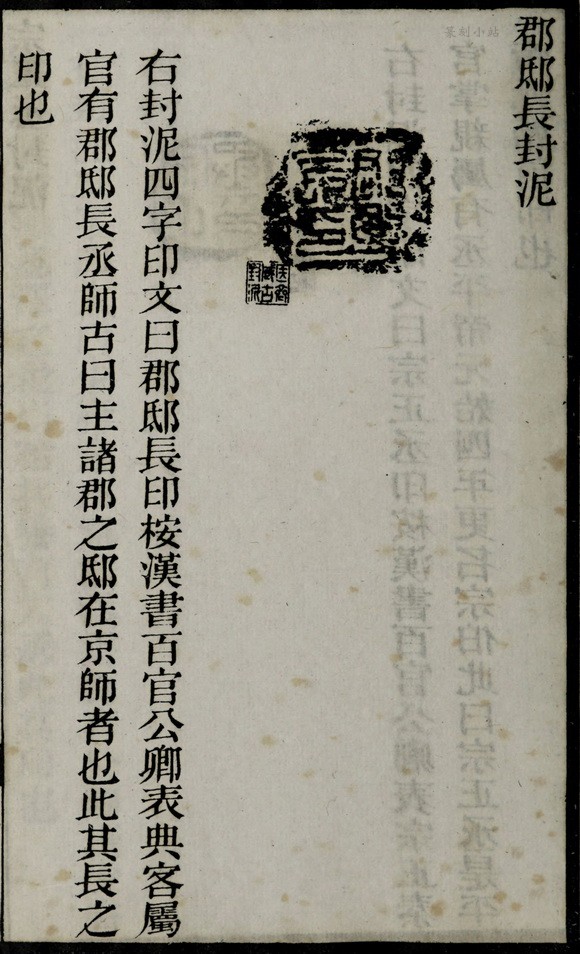 郡邸長封泥
右封泥四字印文曰郡邸長印桉漢書百官公卿表典客屬
官有郡邸長丞師古曰主諸郡之邸在京師者也此其長之
印也
篆刻小站